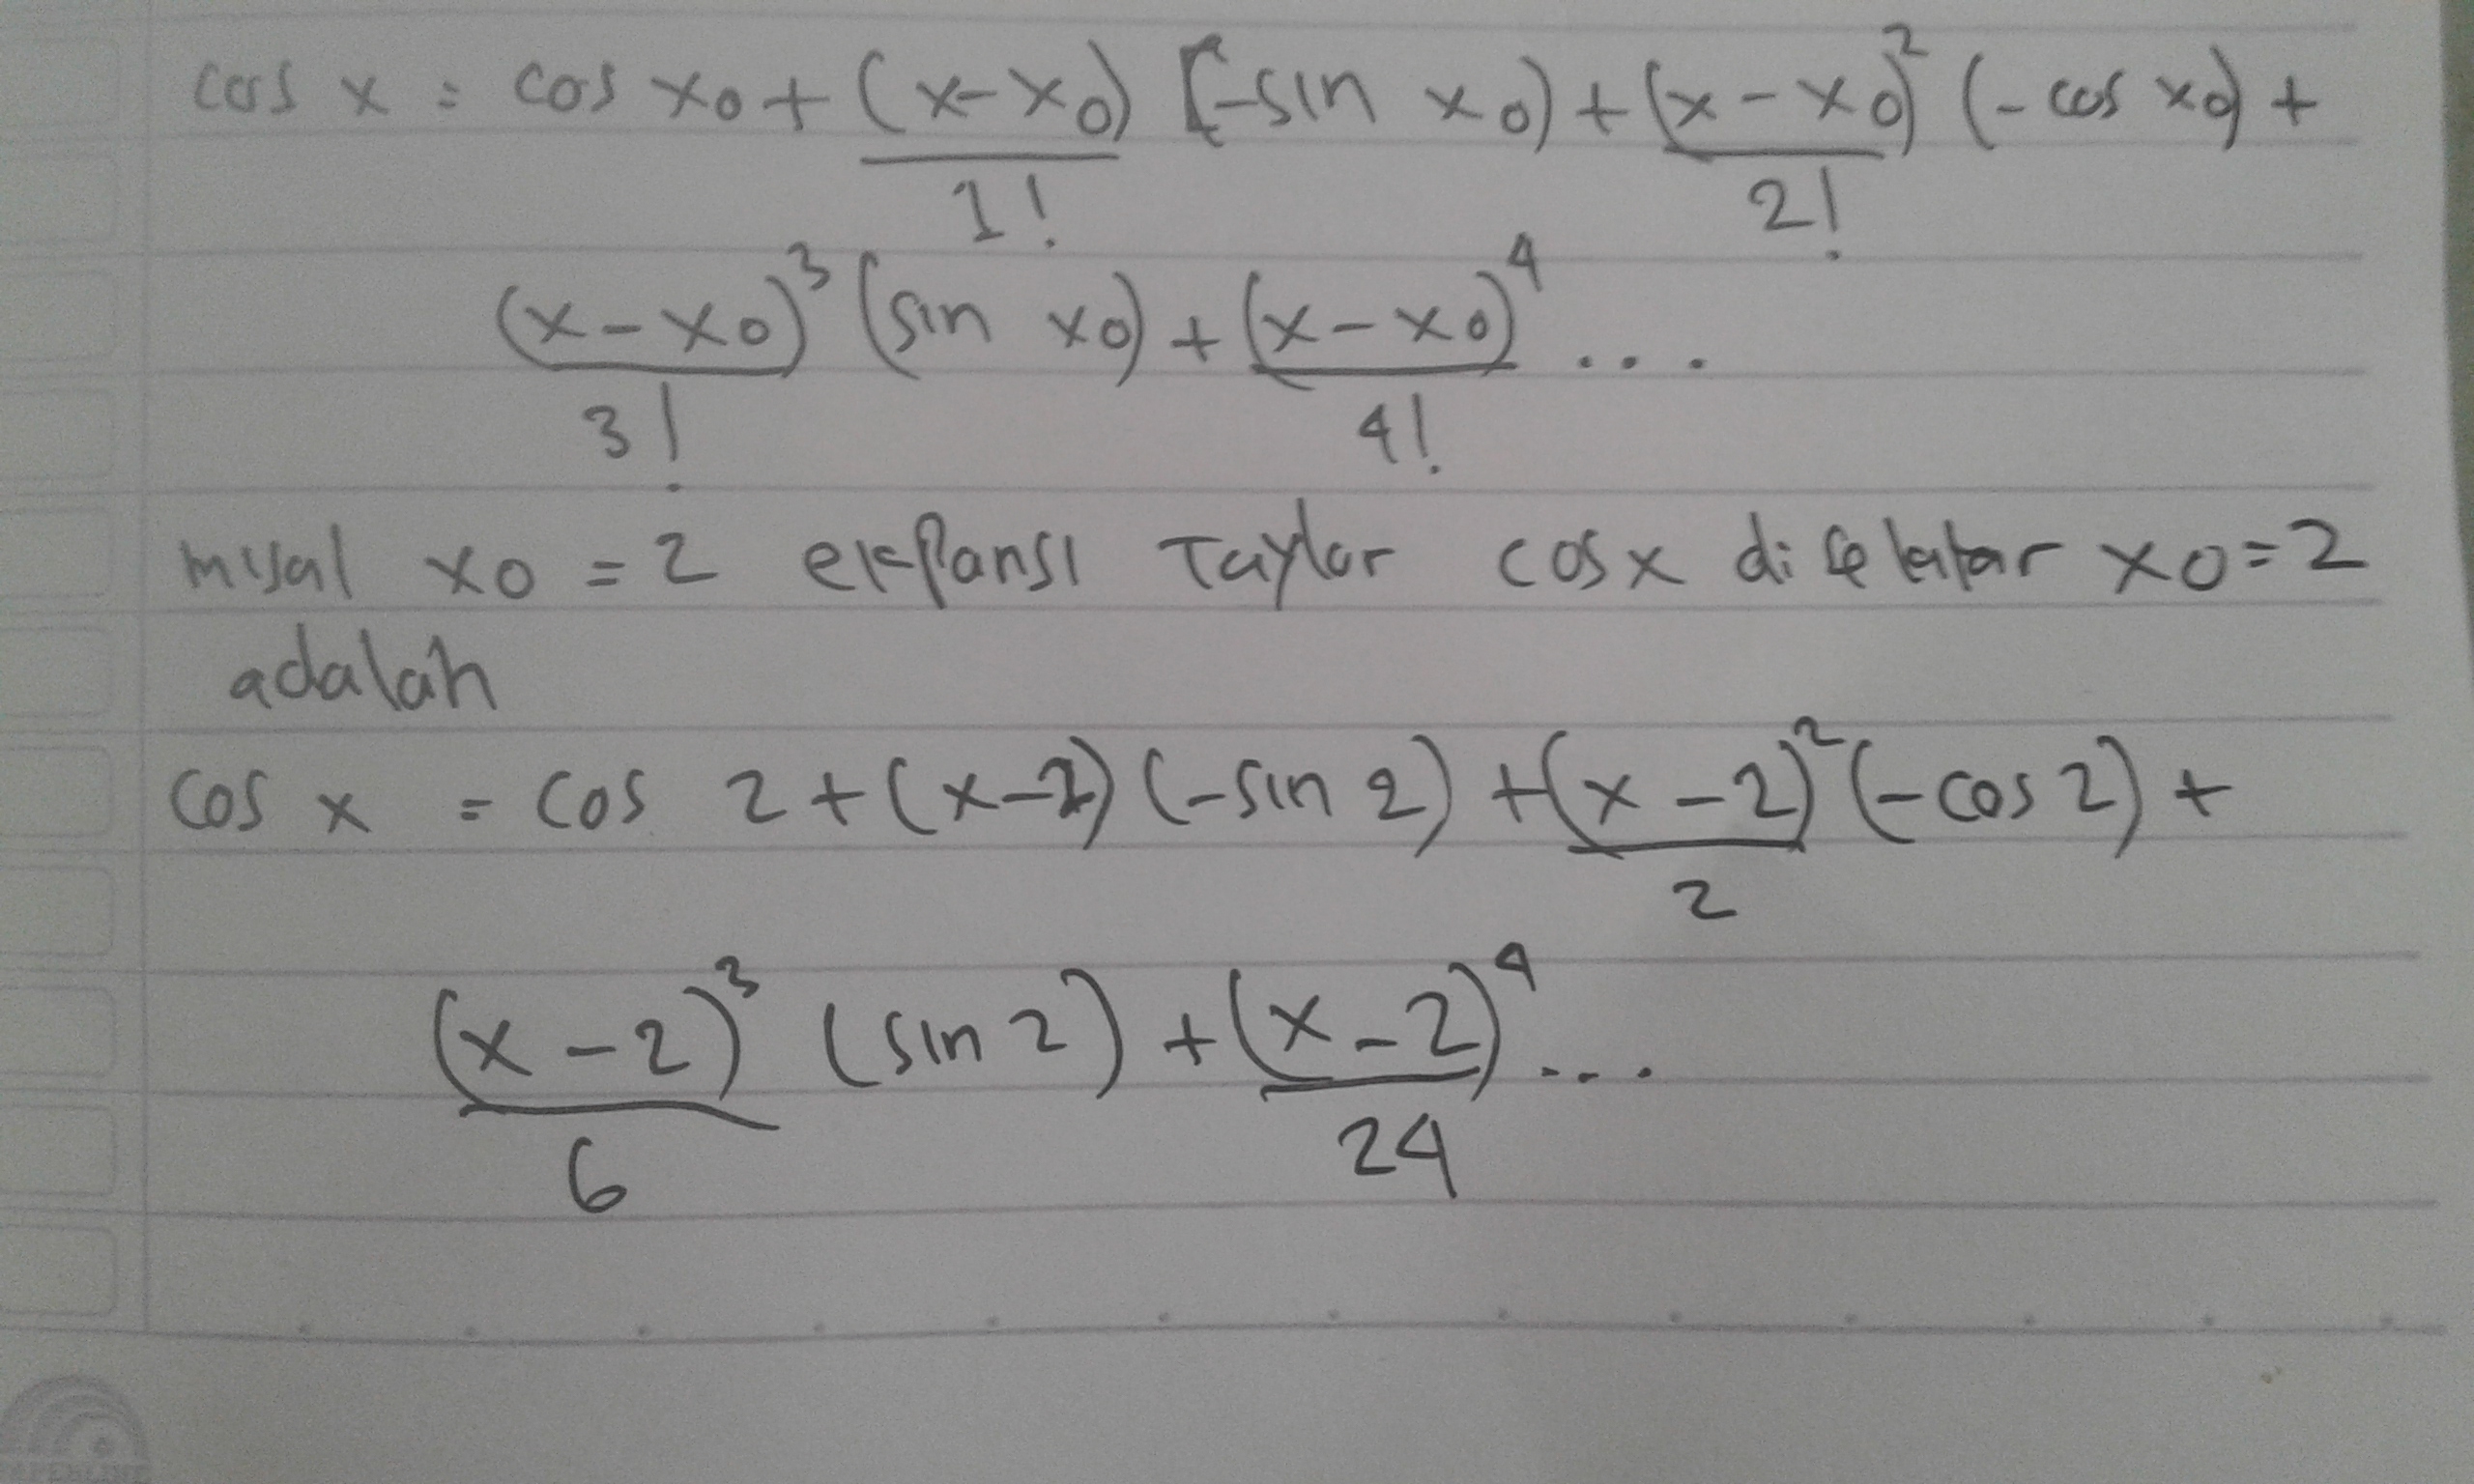 cos x = cos x0 + (x-x0)/1! (-sin x0) + (x-x0)²/2! (-cos x0) +
(x-x0)³/3! (sin x0) + (x-x0)⁴/4! ....
misal x0 = 2 ekpansi Taylor cos x disekitar x0=2
adalah
cos x = cos 2 + (x-2) (-sin 2) + (x-2)²/2 (-cos 2) +
(x-2)³/6 (sin 2) + (x-2)⁴/24 ....